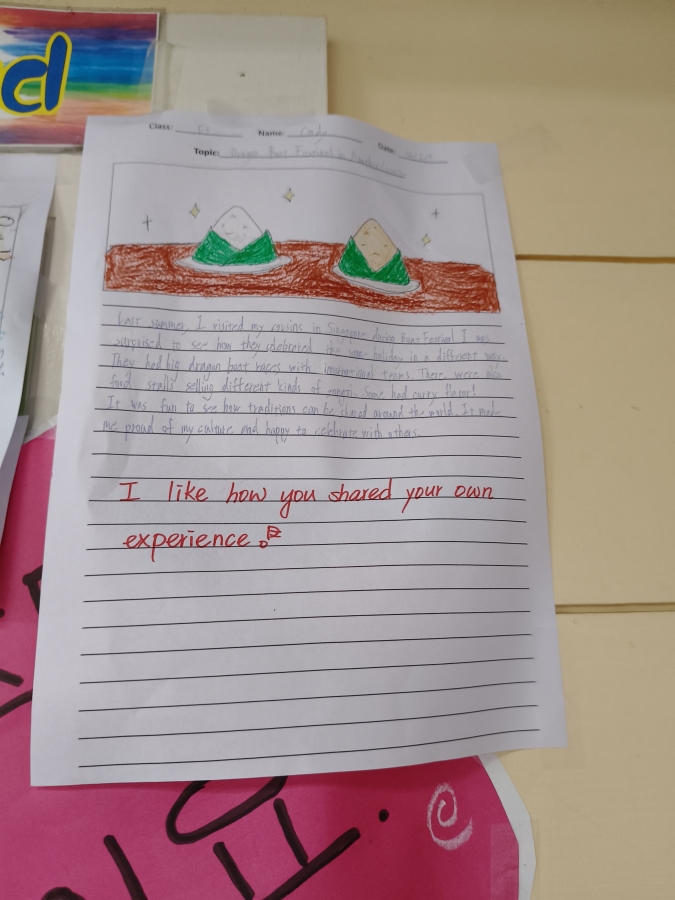 d
Class: Name: Cady Date:
Topic: Dragon Boat Festival in Another
Last summer, I visited my cousins in Singapore during Boat Festival I was
surprised to see how they celebrated the same holiday in a different way.
They had big dragon boat races with international teams. There were also
food stalls selling different kinds of zongzi. Some had curry flavor!
It was fun to see how traditions can be shared around the world. It made
me proud of my culture and happy to celebrate with others.
I like how you shared your own
experience.